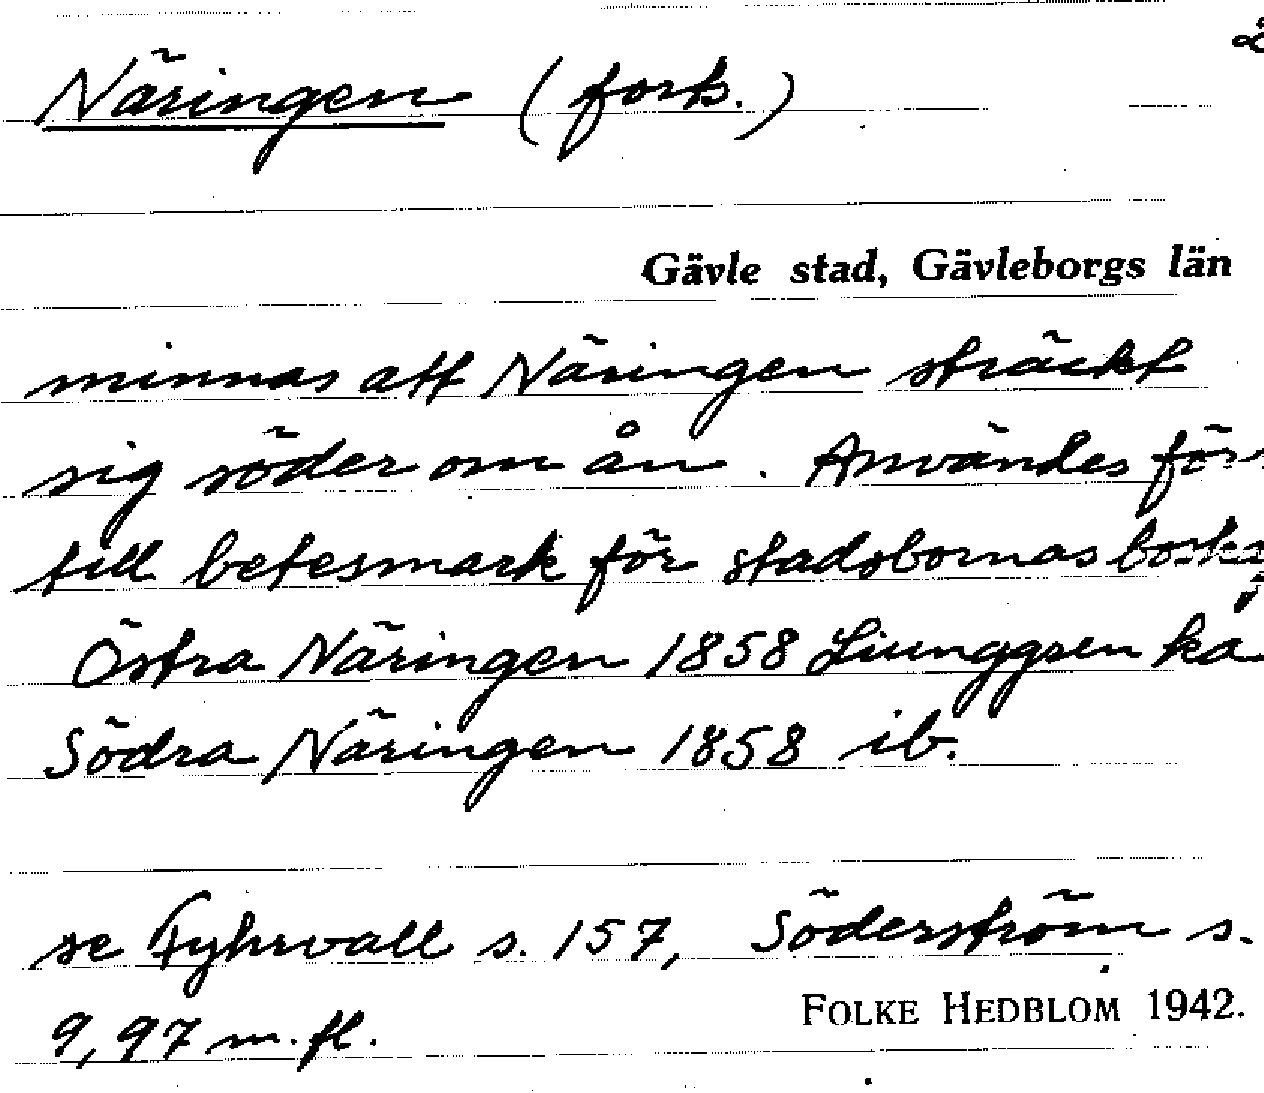 2
Näringen (forts.)
Gävle stad, Gävleborgs län
minnas att Näringen sträckt
sig söder om ån. Användes förr
till betesmark för stadsbornas
Östra Näringen 1858 Ljunggren ka
Södra Näringen 1858 ib.
se Fyhrvall s. 157, Söderström s.
9, 97 m. fl.
FOLKE HEDBLOM 1942.